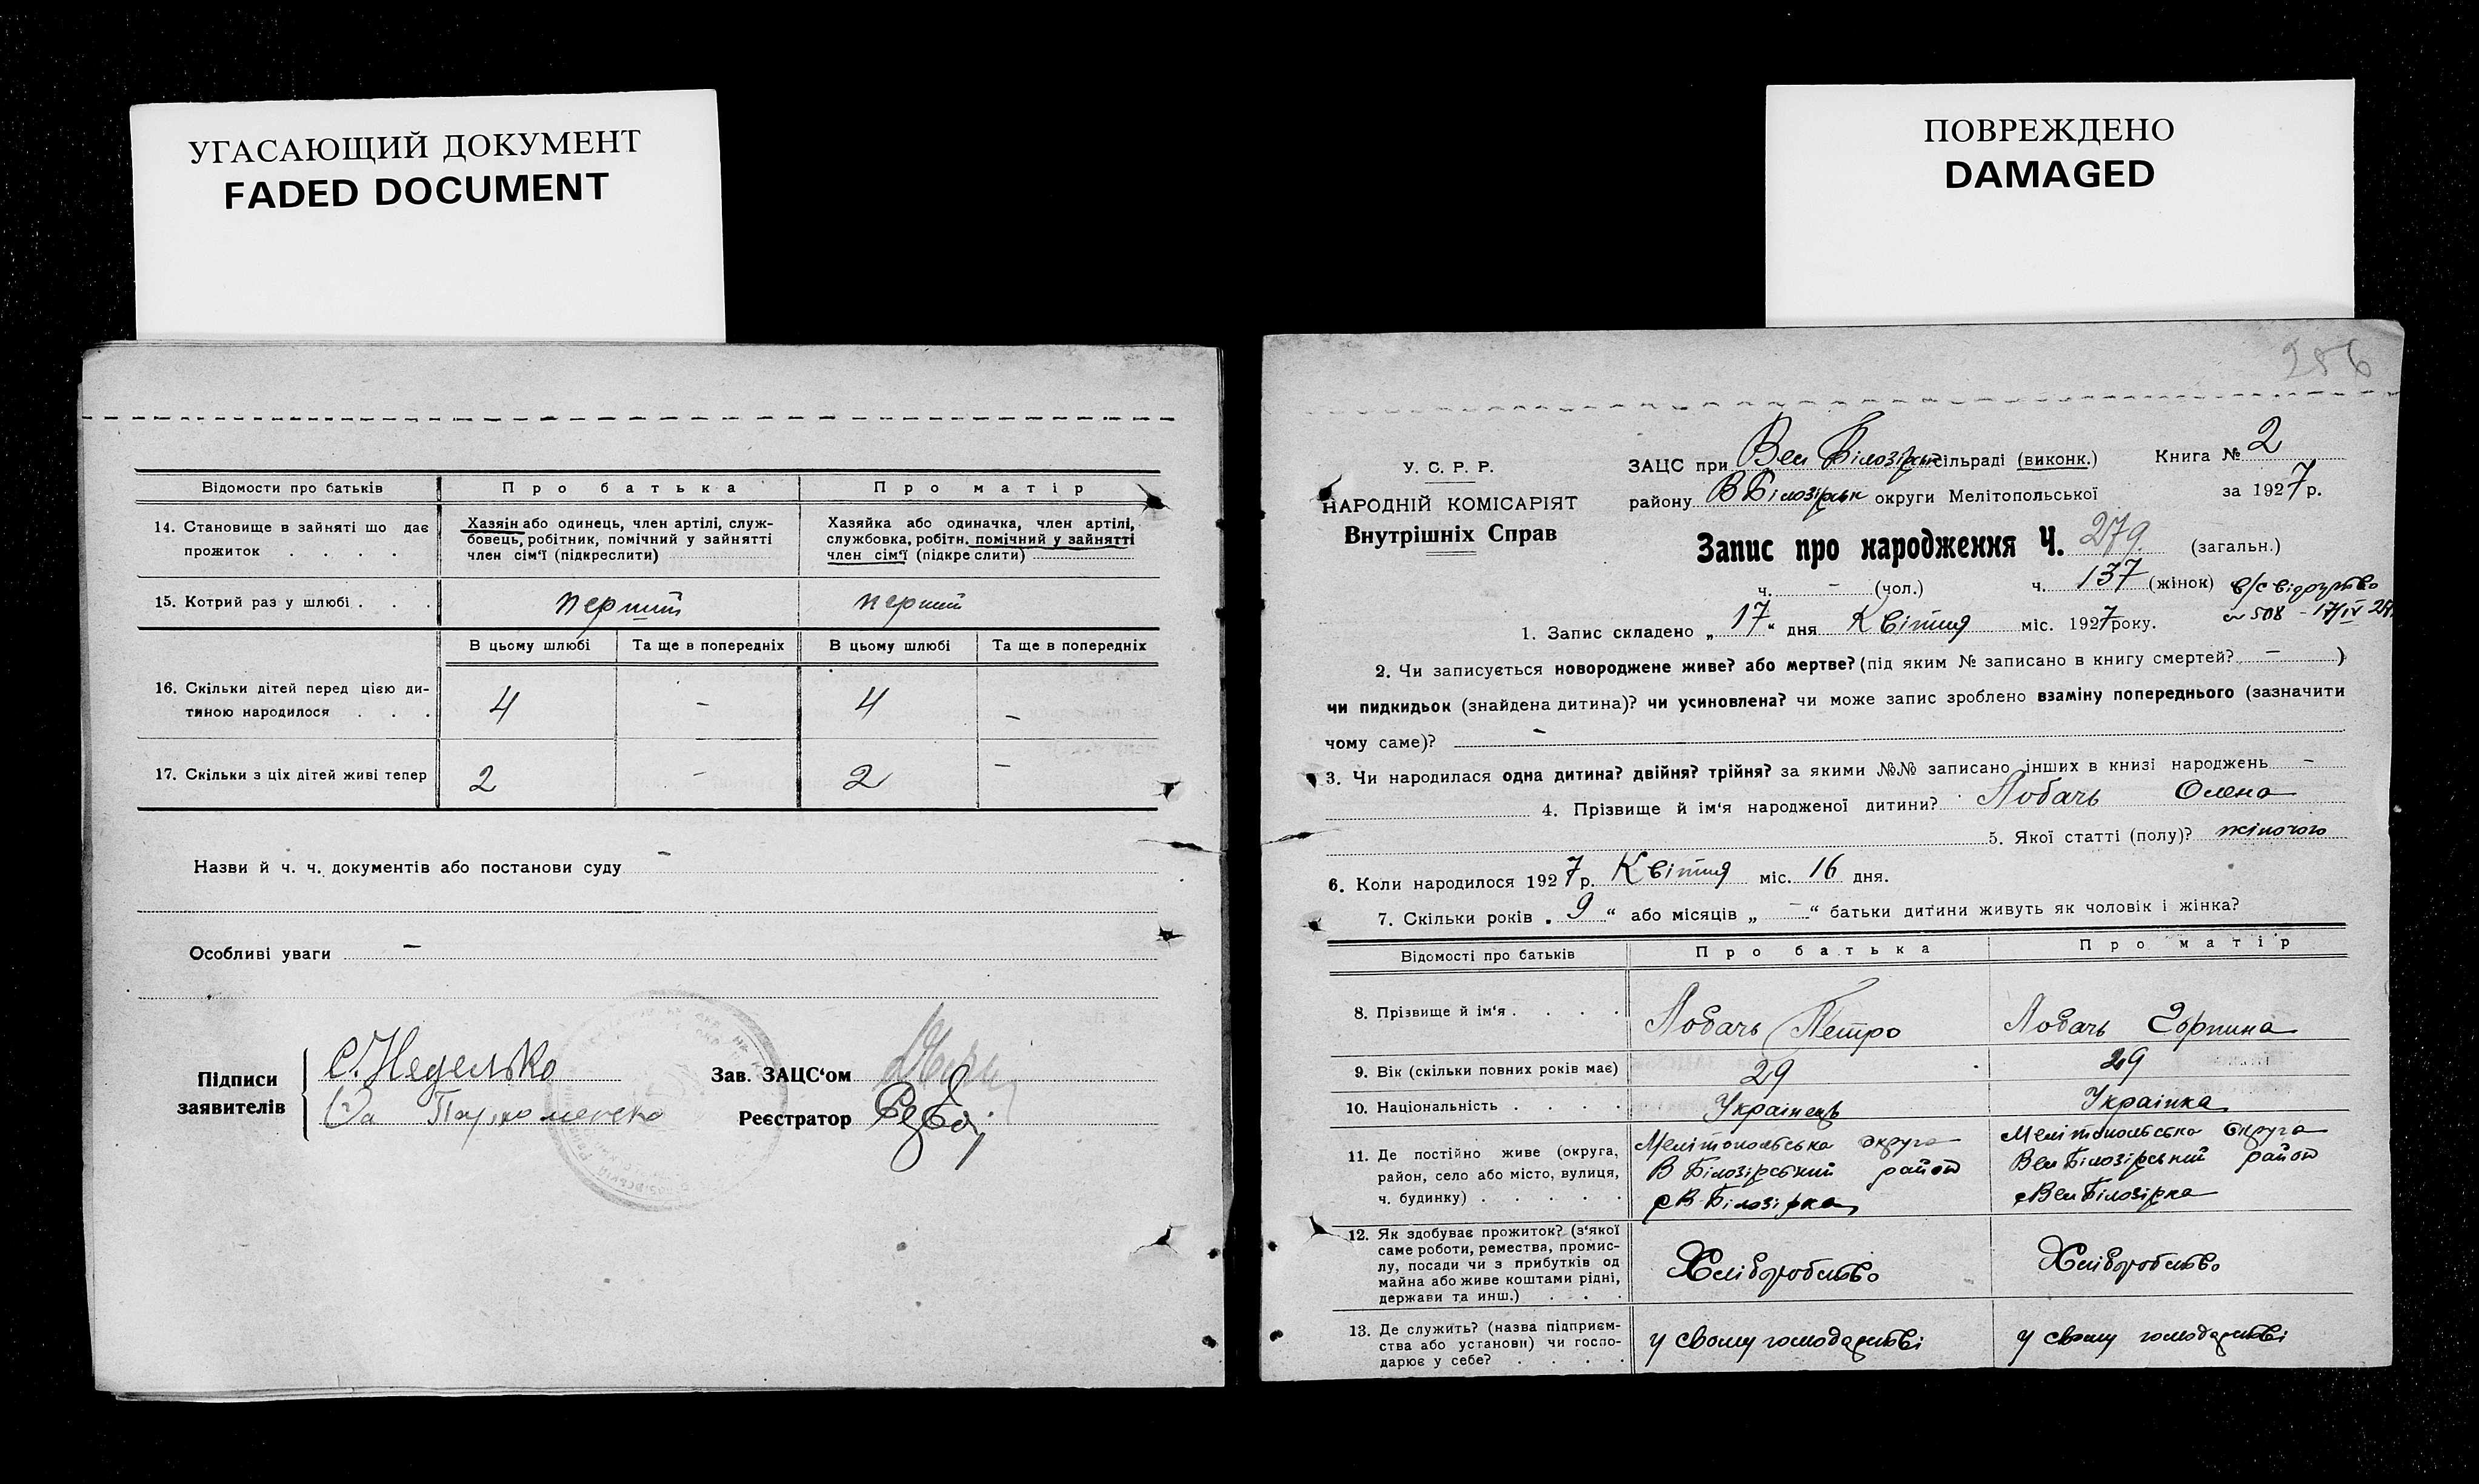 УГАСАЮЩИЙ ДОКУМЕНТ
FADED DOCUMENT
Відомости про батьків
Про батька
Про матір
14. Становище в зайняті що дає прожиток . . . .
Хазяін або одинець, член артілі, служ-
бовець, робітник, помічний у зайнятті
член сім'ї (підкреслити)
Хазяйка або одиначка, член артілі,
службовка, робітн. помічний у зайнятті
член сім'ї (підкреслити)
15. Котрий раз у шлюбі . . .
перший
перший
В цьому шлюбі
Та ще в попередніх
В цьому шлюбі
Та ще в попередніх
16. Скільки дітей перед цією ди-
тиною народилося . . .
4 - 4 -
17. Скільки з ціх дітей живі тепер
2 - 2 -
Назви й ч. ч. документів або постанови суду -
Особливі уваги -
Підписи
заявителів
С. Неделько
За Пархоменско
Зав. ЗАЦС'ом
Реєстратор
ПОВРЕЖДЕНО
DAMAGED
286
У. С. Р. Р.
НАРОДНІЙ КОМІСАРІЯТ
Внутрішніх Справ
ЗАЦС при Вел Білозірск сільраді (виконк.) Книга № 2
району В Білозірск округи Мелітопольської за 1927 р.
Запис про народження Ч. 279 (загальн.)
ч. - (чол.) ч. 137 (жінок)
№ 508 - 17/IV
1. Запис складено „17“ дня Квітня міс. 1927 року.
2. Чи записується новороджене живе? або мертве? (під яким № записано в книгу смертей? - )
чи пидкидьок (знайдена дитина)? чи усиновлена? чи може запис зроблено взаміну попереднього (зазначити
чому саме)? -
3. Чи народилася одна дитина? двійня? трійня? за якими №№ записано інших в книзі народжень -
4. Прізвище й ім'я народженої дитини? Лобачь Олена
5. Якої статті (полу)? жіночого
6. Коли народилося 1927 р. Квітня міс. 16 дня.
7. Скільки років „9“ або місяців „-“ батьки дитини живуть як чоловік і жінка?
Відомості про батьків
Про батька
Про матір
8. Прізвище й ім'я . . . .
Лобачь Петро
Лобачь Горпина
9. Вік (скільки повних років має)
29
29
10. Національність . . . .
Украінець
Украінка
11. Де постійно живе (округа,
район, село або місто, вулиця,
ч. будинку) . . . . .
Мелітопольська округа
В Білозірський район
с В-Білозірка
Мелітопольська округа
Вел Білозірський район
с Вел Білозірка
12. Як здобуває прожиток? (з'якої
саме роботи, ремества, промис-
лу, посади чи з прибутків од
майна або живе коштами рідні,
держави та инш.) . . .
Хліборобство
Хліборобство
13. Де служить? (назва підприєм-
ства або установи) чи госпо-
дарює у себе? . . . .
у свому господарстві
у свому господарстві